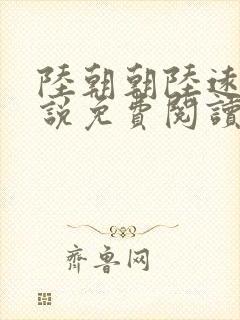 陸朝朝陸遠
說免費閱讀
齊魯网